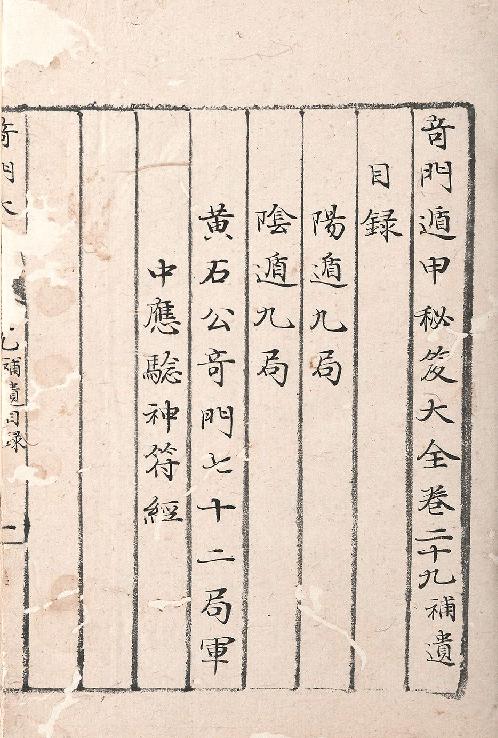 奇門遁甲秘笈大全卷二十九補遺
目録
陽遁九局
陰遁九局
黄石公奇門七十二局軍
中應驗神符經
奇門大
九補遺目録
一